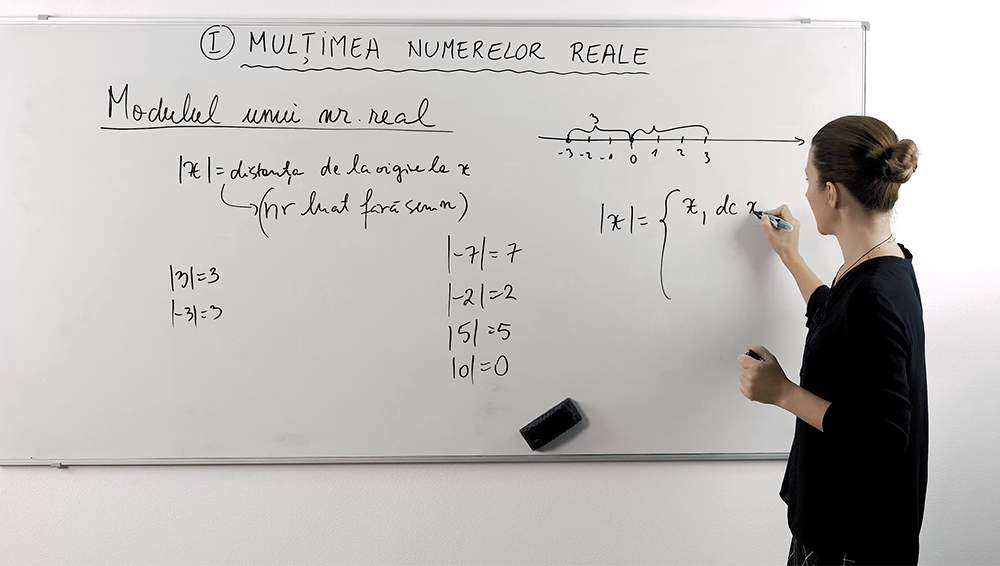 I MULȚIMEA NUMERELOR REALE
Modulul unui nr. real
|x| = distanța de la origine la x
(nr luat fără semn)
|3|=3
|-3|=3
|-7|=7
|-2|=2
|5|=5
|0|=0
3
-3 -2 -1 0 1 2 3
|x| = { x, dc x